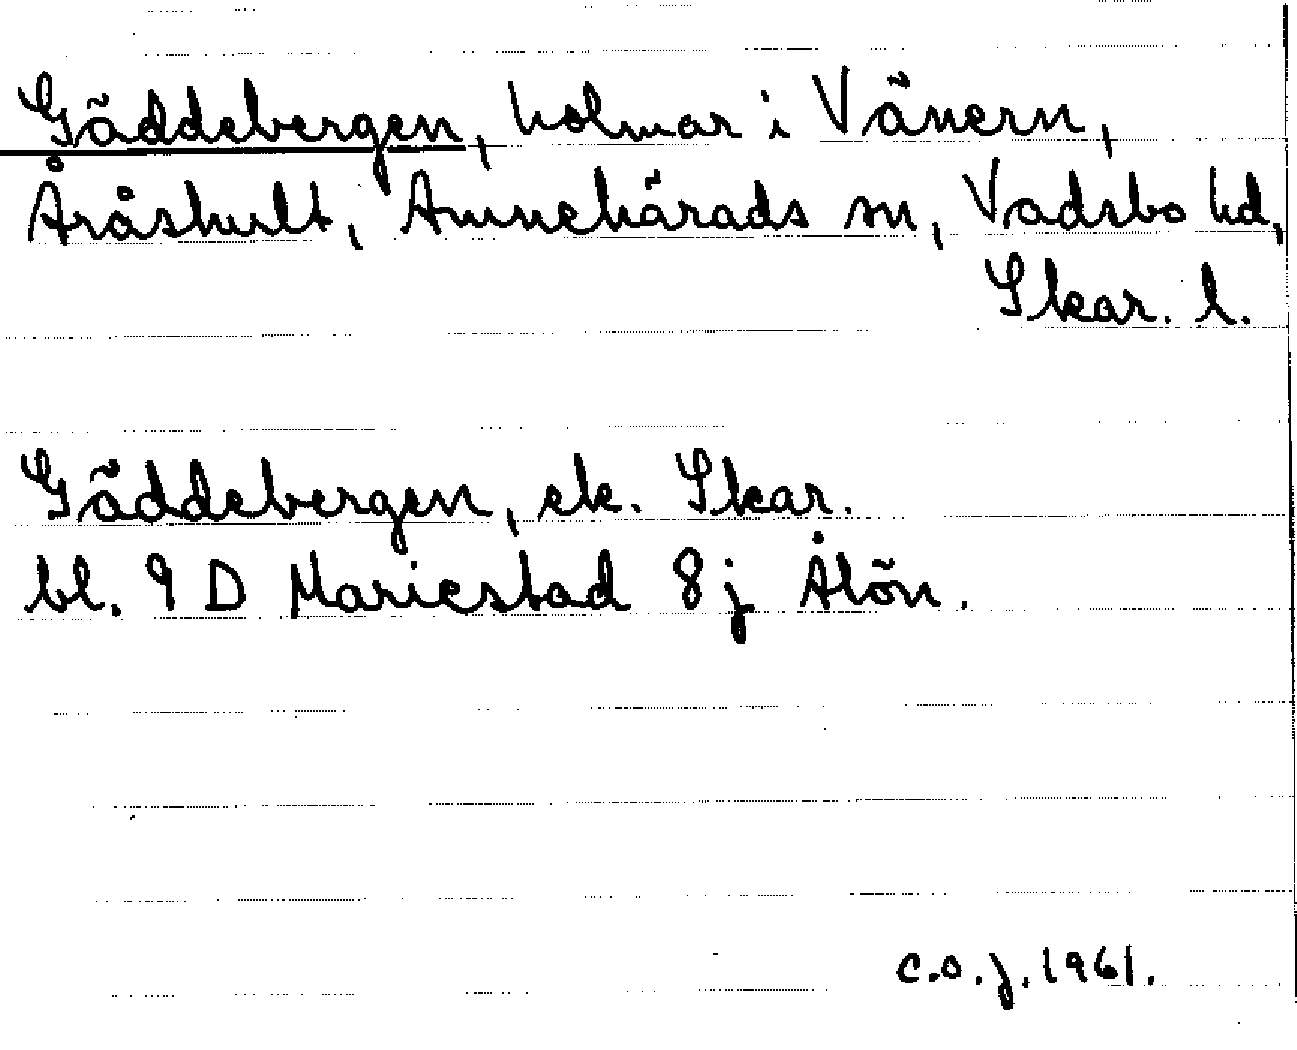 Gäddebergen, holmar i Vänern,
Åråshult, Amnehärads sn, Vadsbo hd,
Skar. l.
Gäddebergen, ek. Skar.
bl. 9 D Mariestad 8 j Ålön.
C.O.J. 1961.